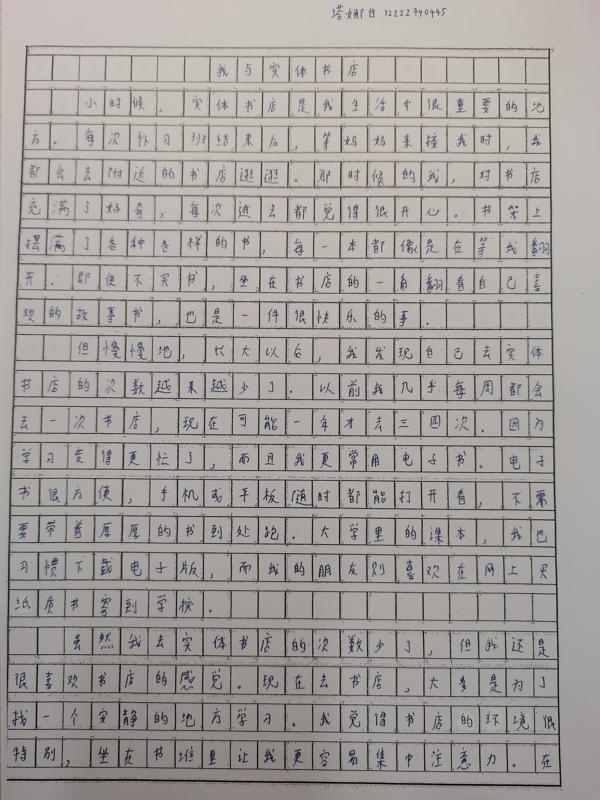 塔娜 12222740445
我与实体书店
小时候，实体书店是我生活中很重要的地
方。每次补习班结束后，等妈妈来接我时，我
都会去附近的书店逛逛。那时候的我，对书店
充满了好奇，每次进去都觉得很开心。书架上
摆满了各种各样的书，每一本都像是在等我翻
开。即使不买书，坐在书店的一角翻看自己喜
欢的故事书，也是一件很快乐的事。
但慢慢地，长大以后，我发现自己去实体
书店的次数越来越少了。以前我几乎每周都会
去一次书店，现在可能一年才去三四次。因为
学习变得更忙了，而且我更常用电子书。电子
书很方便，手机或平板随时都能打开看，不需
要带着厚厚的书到处跑。大学里的课本，我也
习惯下载电子版，而我的朋友则喜欢在网上买
纸质书寄到学校。
虽然我去实体书店的次数少了，但我还是
很喜欢书店的感觉。现在去书店，大多是为了
找一个安静的地方学习。我觉得书店的环境很
特别，坐在书堆里让我更容易集中注意力。在